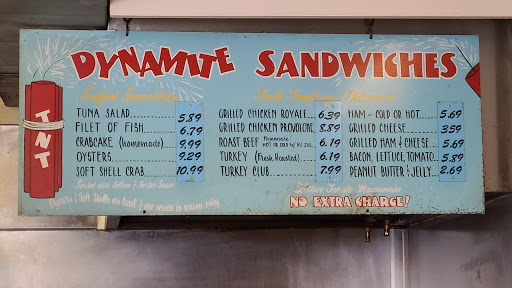 DYNAMITE SANDWICHES
TNT
Seafood Favorites
TUNA SALAD 5.89
FILET OF FISH 6.79
CRABCAKE (homemade) 9.99
OYSTERS 9.29
SOFT SHELL CRAB 10.99
Served with Lettuce & Tartar Sauce
Oysters / Soft Shells are local / are served in season only
GRILLED CHICKEN ROYALE 6.39
GRILLED CHICKEN PROVOLONE 8.89
ROAST BEEF Homemade HOT OR COLD 6.19
TURKEY (Fresh Roasted) 6.19
TURKEY CLUB 7.99
HAM - COLD OR HOT 5.69
GRILLED CHEESE 3.59
GRILLED HAM & CHEESE 5.69
BACON, LETTUCE, TOMATO 5.89
PEANUT BUTTER & JELLY 2.69
Lettuce Tomato Mayonnaise
NO EXTRA CHARGE!